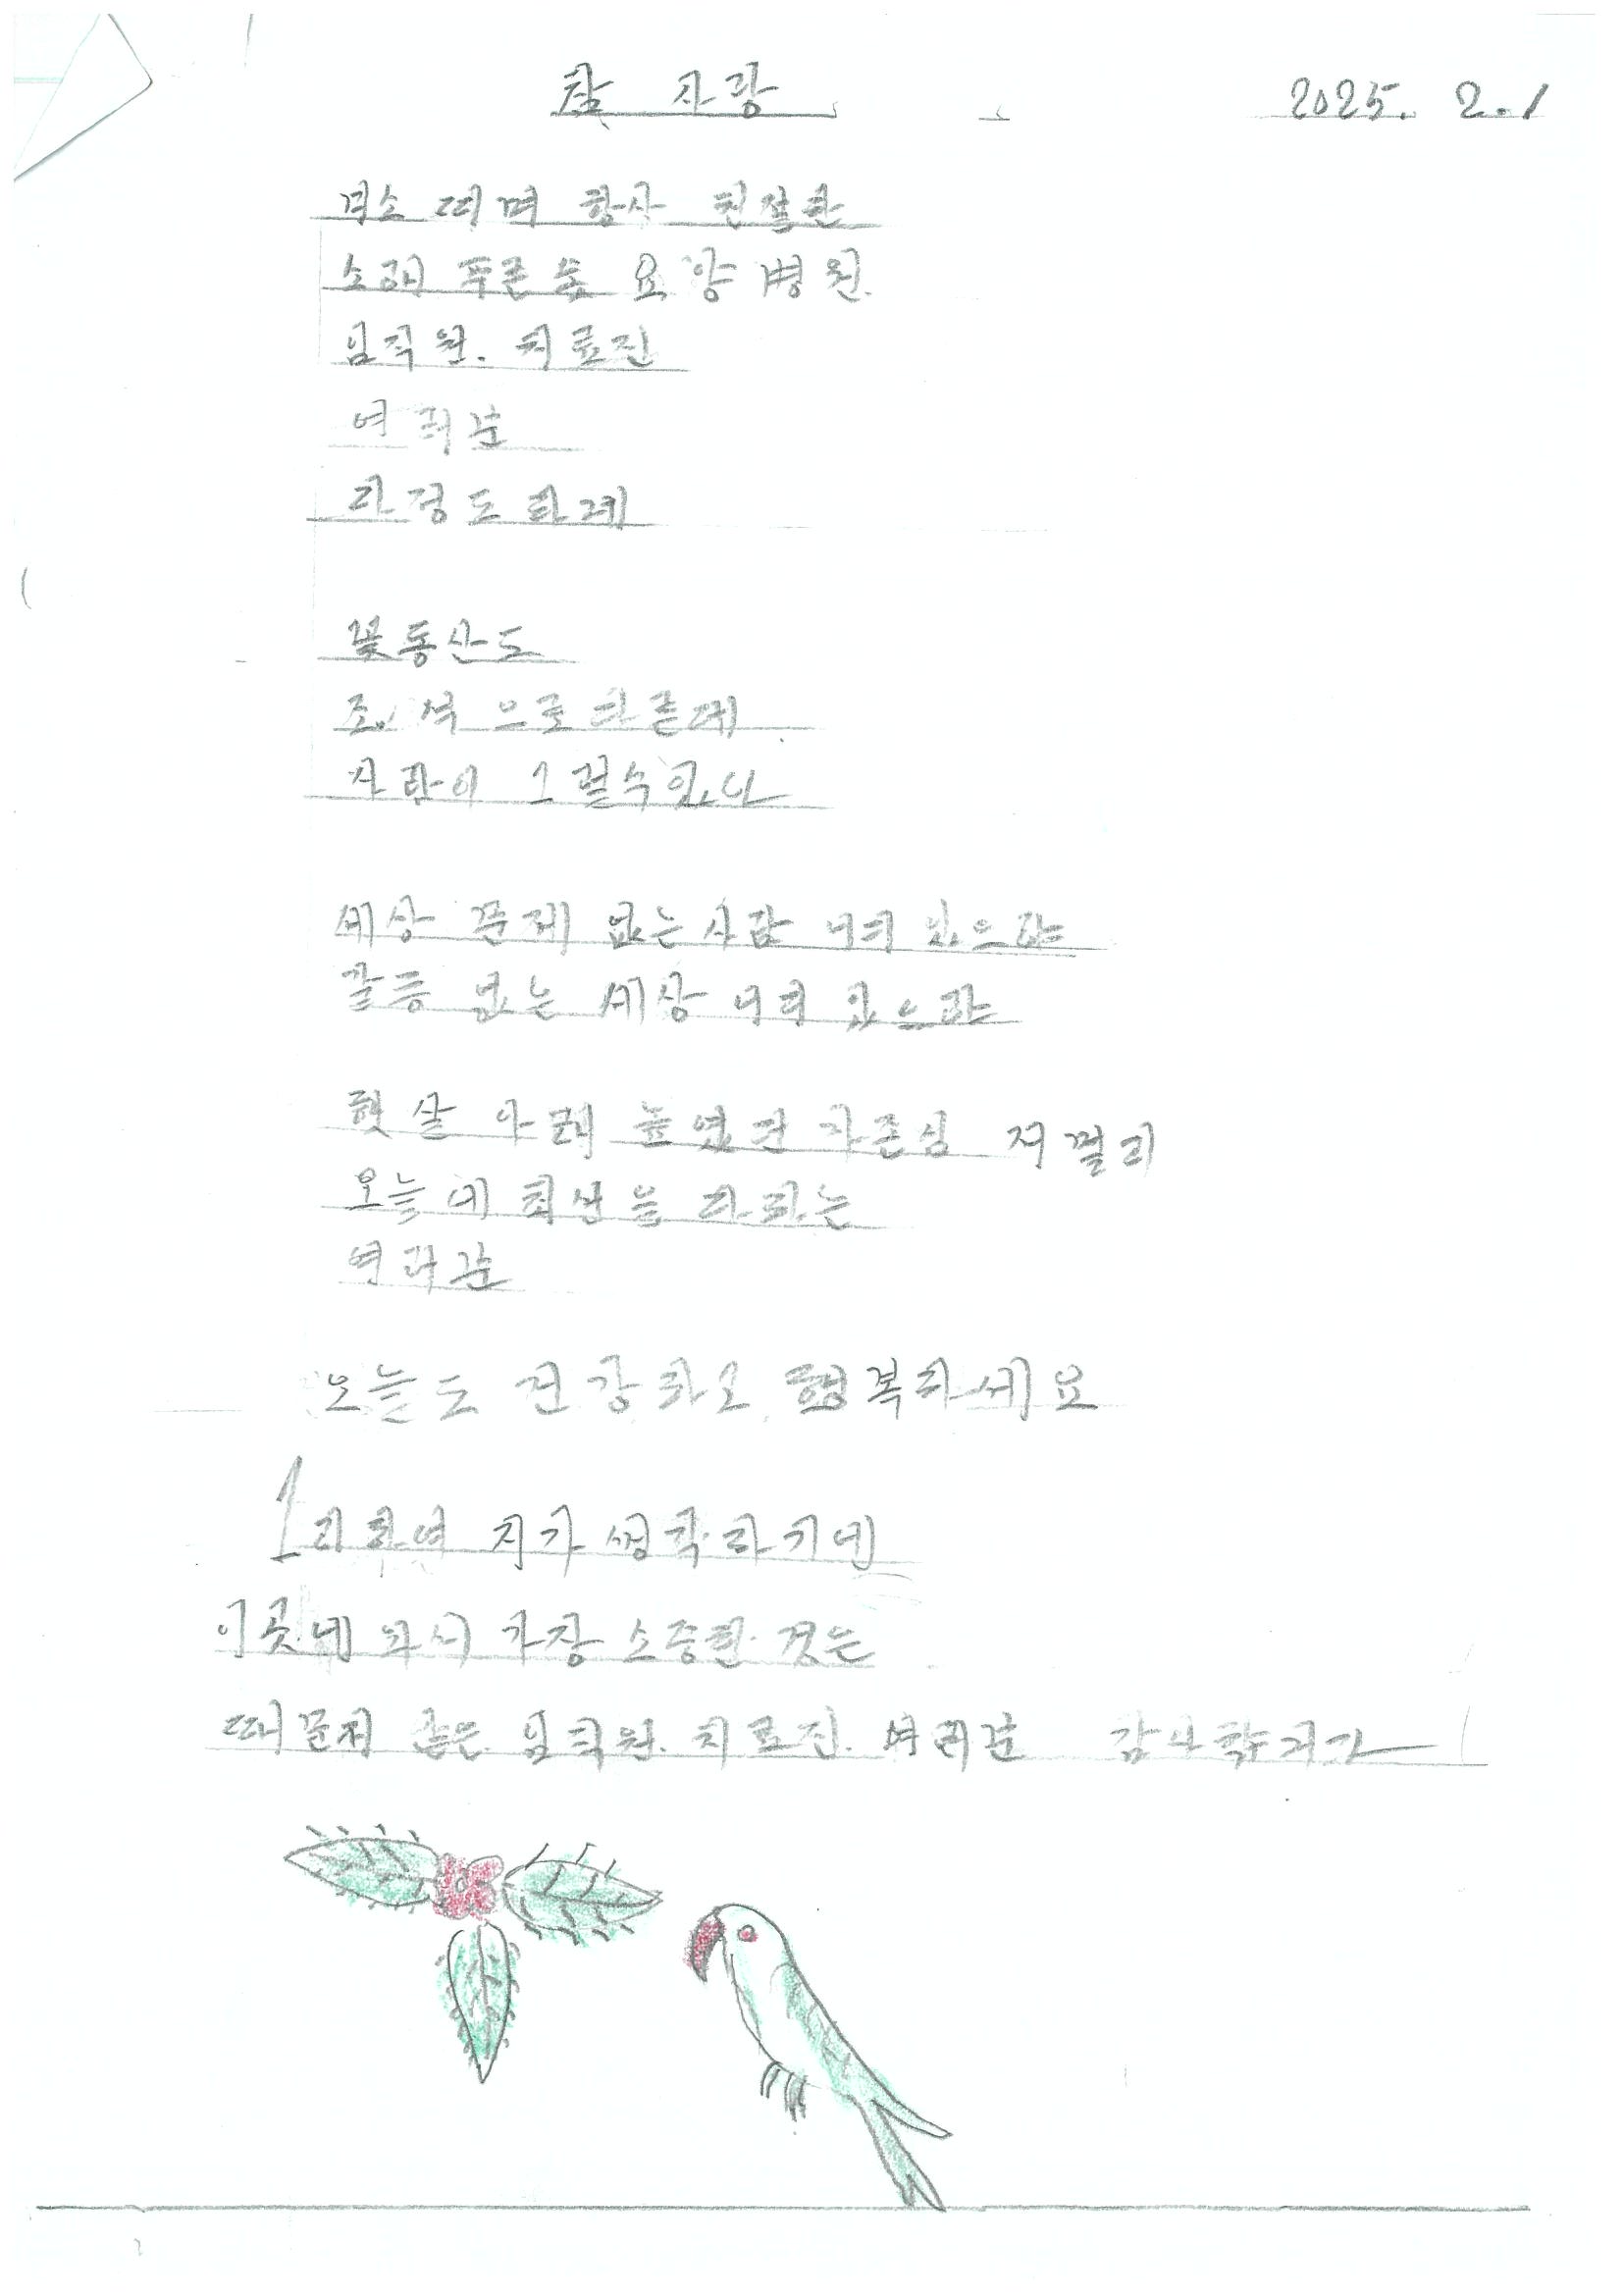 참 사랑
2025. 2. 1
미소 띠며 항상 친절한
소래 푸른숲 요양병원.
임직원. 치료진
여러분
다정도 하례
꽃동산도
조.석으로 다른데
사람이 그럴수있나
세상 문제 없는 사람 어디 있으랴
갈등 없는 세상 어디 있으랴
햇살 아래 높였던 자존심
오늘에 최선을 다하는
여러분
오늘도 건강하고 행복하세요
그리하여 지가 생각하기에
이곳에 와서 가장 소중한 것은
때문지 않은 임직원. 치료진. 여러분